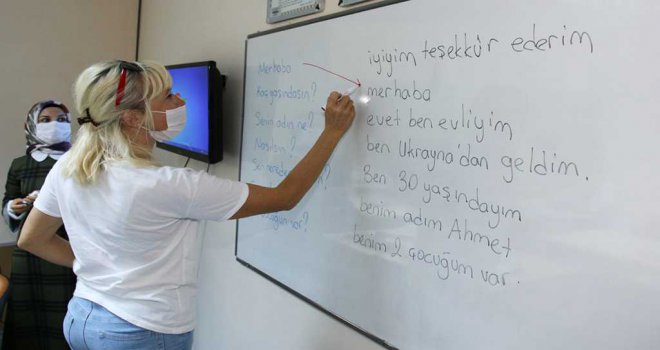 iyiyim teşekkür ederim
Merhaba
merhaba
Kaç yaşındasın?
evet ben evliyim
Senin adın ne?
ben Ukrayna'dan geldim.
Nasılsın?
Ben 30 yaşındayım
Sen nerede
benim adım Ahmet
benim 2 çocuğum var.